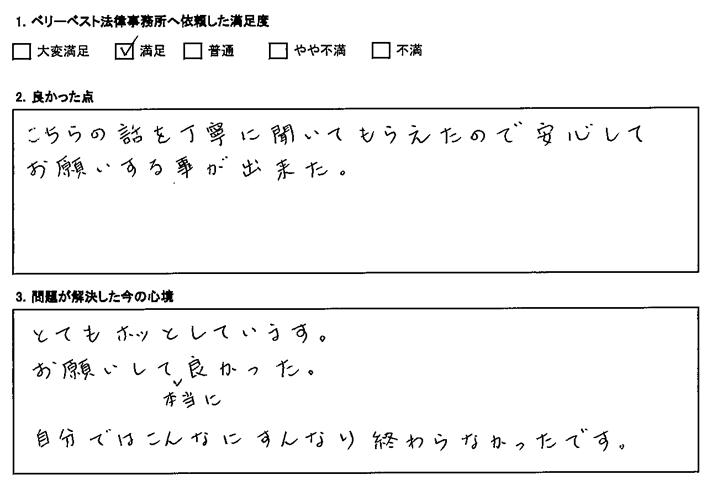 1. ベリーベスト法律事務所へ依頼した満足度
□大変満足 ☑満足 □普通 □やや不満 □不満
2. 良かった点
こちらの話を丁寧に聞いてもらえたので安心して
お願いする事が出来た。
3. 問題が解決した今の心境
とてもホッとしています。
お願いして良かった。
本当に
自分ではこんなにすんなり終わらなかったです。